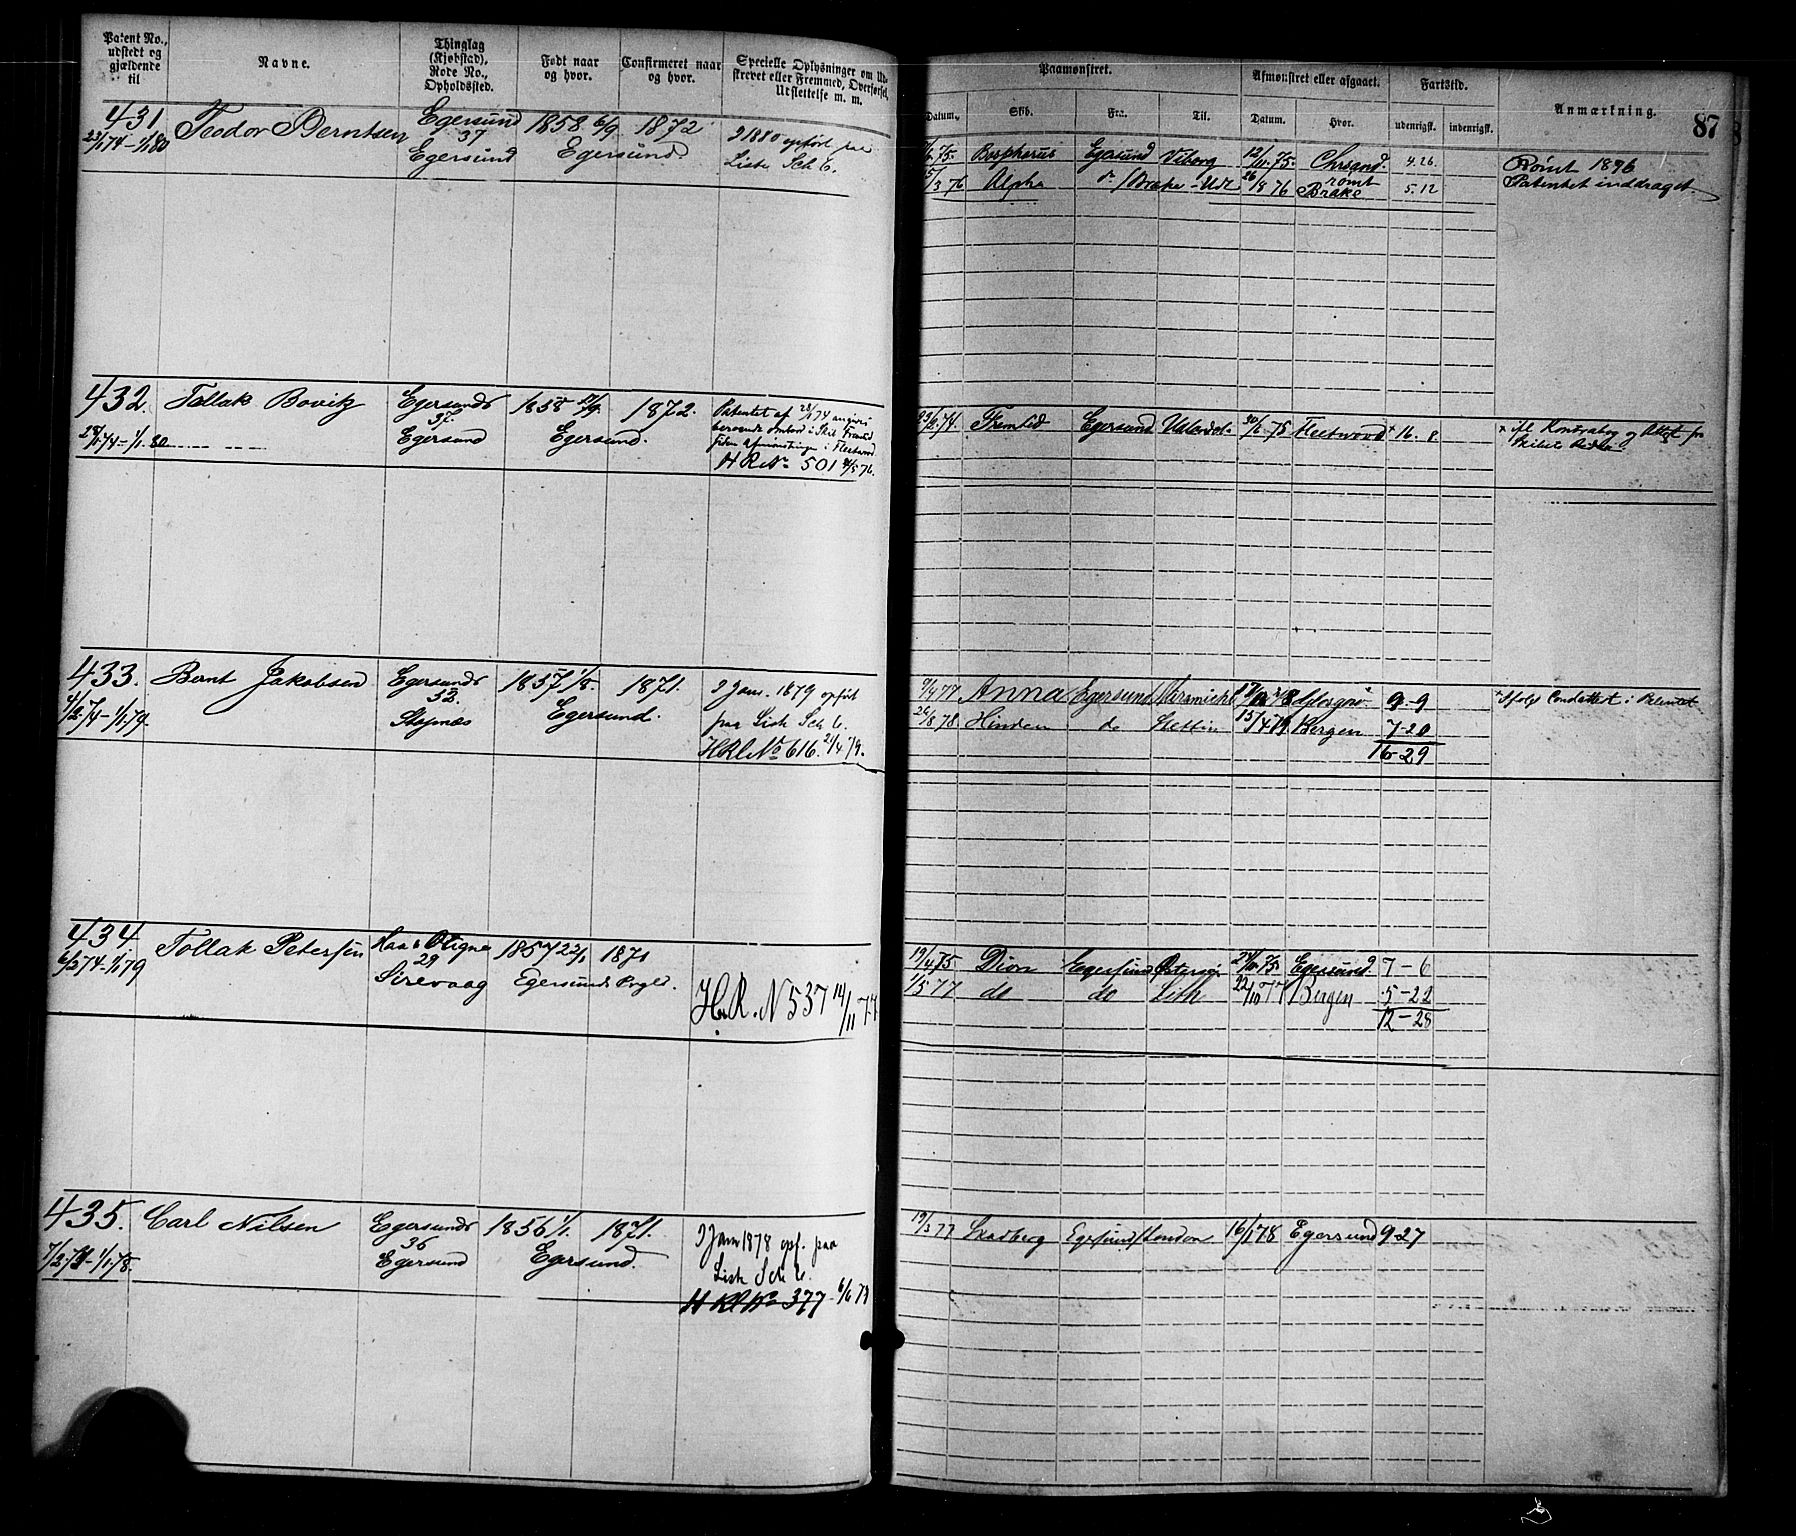 Patent No., udstedt og gjældende til
Navne.
Thinglag (Kjøbstad), Rode No., Opholdssted.
Født naar og hvor.
Confirmeret naar og hvor.
Specielle Oplysninger om Udskrevet eller Fremmed, Overførsel, Udslettelse m. m.
Paamønstret.
Afmønstret eller afgaaet.
Fartstid.
Anmærkning.
87
Datum.
Skib.
Fra.
Til.
Datum.
Hvor.
udenrigsk.
indenrigsk.
431 Teodor Berntsen Egersund 1858 6/9 1872 I 1880 opført paa
23/1 74-1/1 80 37 Egersund Egersund Liste Sch C.
75 Bospherus Egersund Viborg 12/11 75 Chrsand. 4.26 Rømt 1896
15/3 76 Alpha do Brake - Udl 26/8 76 rømt Brake 5.12 Patentet inddraget
432 Tollak Bovitz Egersunds 1858 1872. Patentet af 28/1 74
28/1 74-1/1 80 37. Egersund Egersund. beroende ombord i Skib Fremtid
siden afmønstringen i Fleetwood
HRNo 501 5 76.
74 Fremtid Egersund 30/6 75 Fleetwood × 16. 8. × Kontrabog og Attest fra
433. Bernt Jakobsen Egersunds 1857 1/8. 1871. I Jan. 1879 opført
4/2 74-1/1 79. 32 Stapnæs Egersund. paa Liste Sch C.
HRl No 616. 21/4 79.
9/4 77 Anna Egersund 9-9 × Ifølge i Patentet
26/8 78 Hinden do Stettin 15/4 79 Bergen 7-20
16-29
434 Tollak Petersen Haa & Ogne 1857 22/1 1871
6/2 74-1/1 79 29 Sirevaag Egersunds Prgld. H.R. N 537 14/11 77
19/4 75 Dion Egersund 75 Egersund 7-6
1/5 77 do do Lith 22/10 77 Bergen 5-22
12-28
435. Carl Nilsen Egersunds 1856 1/1. 1871. I Jan 1878 opf. paa
7/2 74-1/1 78. 36 Egersund Egersund. Liste Sch C.
H Rl No 377 - 6/6 79
19/3 77 Skadberg Egersund London 16/1 78 Egersund 9-27